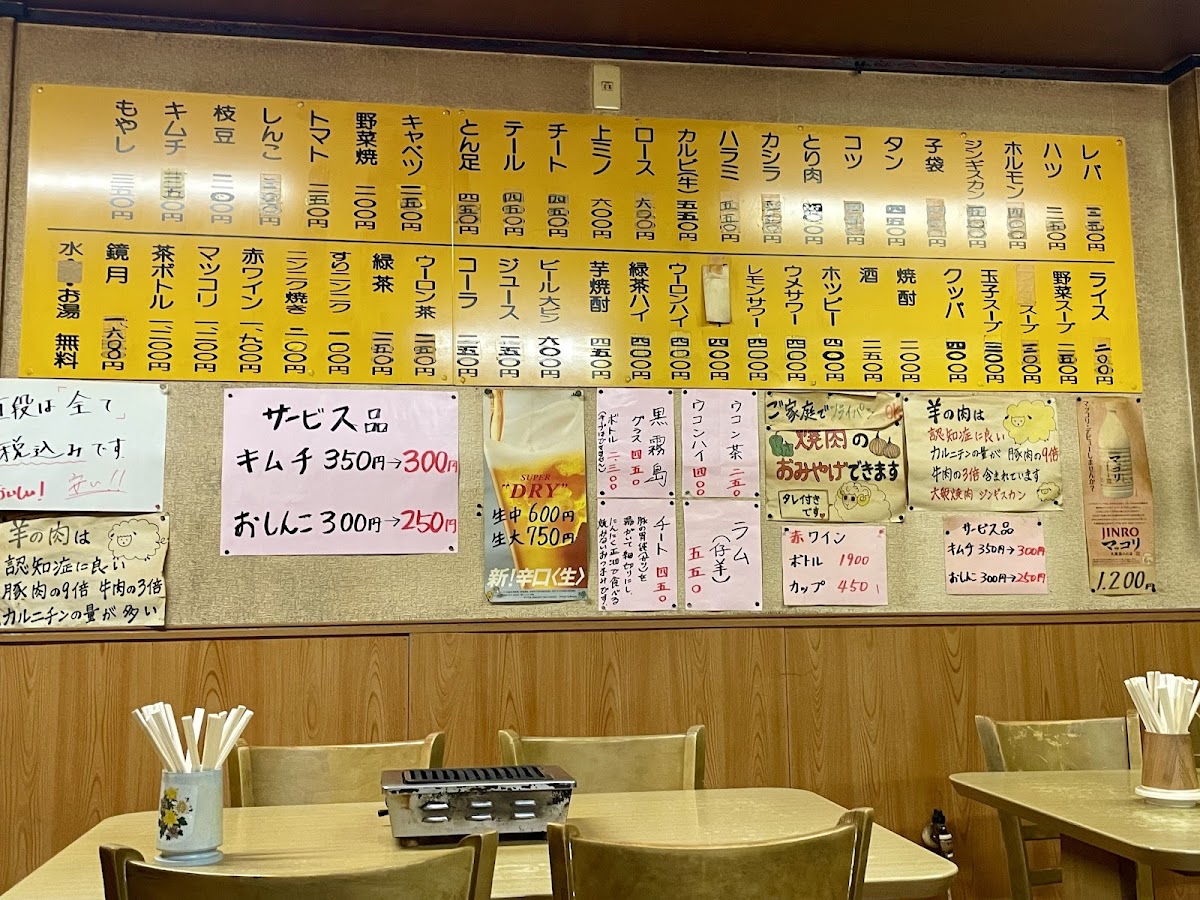 レバ 三五〇円
ハツ 二五〇円
ホルモン 四〇〇円
ジンギスカン 五〇〇円
子袋
タン 四五〇円
コツ
とり肉
カシラ
ハラミ 五五〇円
カルビ(牛) 五五〇円
ロース 六〇〇円
上ミノ 六〇〇円
チート 四五〇円
テール 四五〇円
とん足 四五〇円
キャベツ 二五〇円
野菜焼 二〇〇円
トマト 三五〇円
しんこ
枝豆 二〇〇円
キムチ 三五〇円
もやし 三五〇円
ライス 二〇〇円
野菜スープ 二五〇円
スープ 二〇〇円
玉子スープ 三〇〇円
クッパ 四〇〇円
焼酎 二〇〇円
酒 二五〇円
ホッピー 四〇〇円
ウメサワー 四〇〇円
レモンサワー 四〇〇円
四〇〇円
ウーロンハイ 四〇〇円
緑茶ハイ 四〇〇円
芋焼酎 四五〇円
ビール大ビン 六〇〇円
ジュース 二五〇円
コーラ 二五〇円
ウーロン茶 二五〇円
緑茶 二五〇円
すりニンニク 一〇〇円
ニンニク焼き 二〇〇円
赤ワイン 一、九〇〇円
マッコリ 一、二〇〇円
茶ボトル 一、二〇〇円
鏡月 一、六〇〇円
水・お湯 無料
は「全て」
税込みです
安い!!
羊の肉は
認知症に良い
豚肉の9倍 牛肉の3倍
カルニチンの量が多い
サービス品
キムチ 350円→300円
おしんこ 300円→250円
SUPER
"DRY"
生中 600円
生大 750円
新!辛口〈生〉
黒霧島
グラス 四五〇
ボトル 二、三〇〇
ウコン茶 二五〇
ウコンハイ 四〇〇
チート 四五〇
豚の胃袋(ガツ)を
ラム(仔羊) 五五〇
ご家庭でフライパンOK
焼肉の
おみやげできます
タレ付きです
赤ワイン
ボトル 1900
カップ 450
羊の肉は
認知症に良い
カルニチンの量が 豚肉の9倍
牛肉の3倍 含まれています
大衆焼肉 ジンギスカン
サービス品
キムチ 350円→300円
おしんこ 300円→250円
マッコリ
JINRO
マッコリ
1.200円